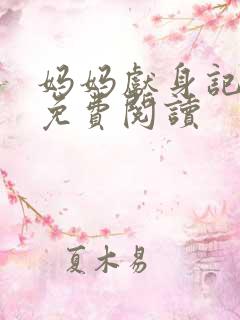 妈妈獻身記
免費閱讀
夏木易